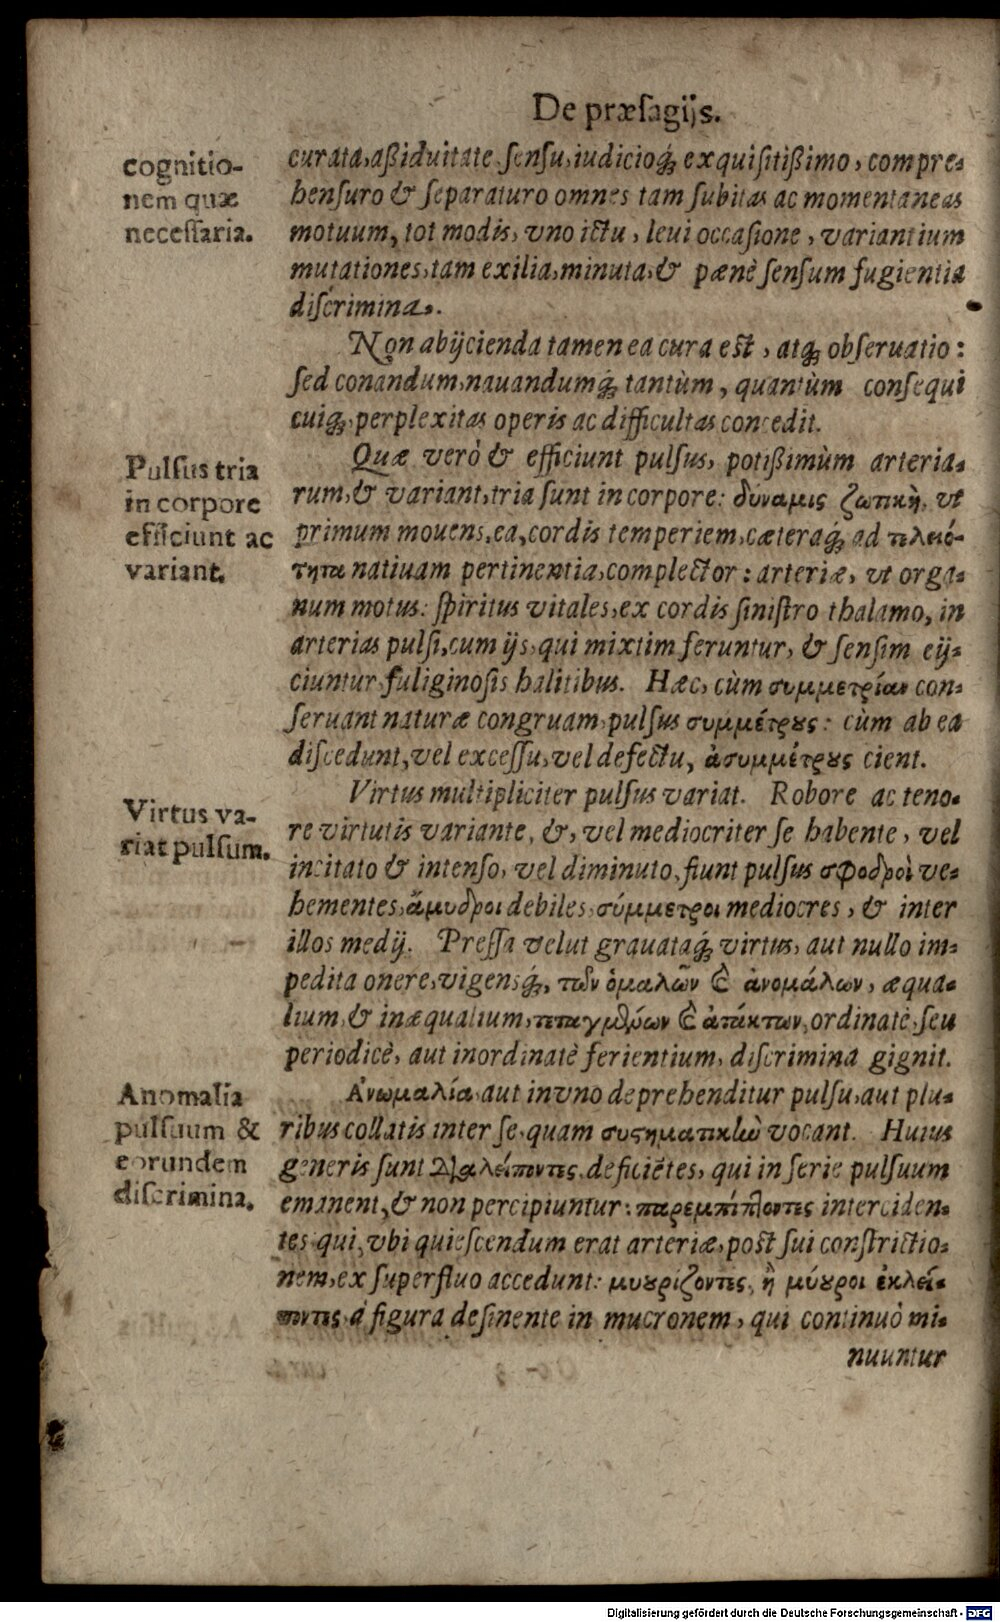 De præsagijs.
cognitio-
nem quæ
necessaria.
curata, aßiduitate sensu, iudicioq́; exquisitißimo, compre-
hensuro & separaturo omnes tam subitas ac momentaneas
motuum, tot modis, vno ictu, leui occasione, variantium
mutationes, tam exilia, minuta, & pænè sensum fugientia
discrimina.
Non abijcienda tamen ea cura est, atq; obseruatio:
sed conandum, nauandumq́; tantùm, quantùm consequi
cuiq;, perplexitas operis ac difficultas concedit.
Pulsus tria
in corpore
efficiunt ac
variant.
Quæ verò & efficiunt pulsus, potißimùm arteria-
rum, & variant, tria sunt in corpore: δύναμις ζωτικὴ, vt
primum mouens, ea, cordis temperiem, cæteraq́; ad τελειό-
τητα natiuam pertinentia, complector: arteriæ, vt orga-
num motus: spiritus vitales, ex cordis sinistro thalamo, in
arterias pulsi, cum ijs, qui mixtim feruntur, & sensim eij-
ciuntur fuliginosis halitibus. Hæc, cùm συμμετρίαν con-
seruant naturæ congruam, pulsus συμμέτρȣς: cùm ab ea
discedunt, vel excessu, vel defectu, ἀσυμμέτρȣς cient.
Virtus va-
riat pulsum.
Virtus multipliciter pulsus variat. Robore ac teno-
re virtutis variante, &, vel mediocriter se habente, vel
incitato & intenso, vel diminuto, fiunt pulsus σφοδροὶ ve-
hementes, ἄμυδροι debiles, σύμμετροι mediocres, & inter
illos medij. Pressa velut grauataq́; virtus, aut nullo im-
pedita onere, vigensq́;, τῶν ὁμαλῶν ϗ̀ ἀνομάλων, æqua-
lium, & inæqualium, τεταγμένων ϗ̀ ἀτάκτων, ordinatè, seu
periodicè, aut inordinatè ferientium, discrimina gignit.
Anomalia
pulsuum &
eorundem
discrimina.
Ἀνωμαλία, aut in vno deprehenditur pulsu, aut plu-
ribus collatis inter se, quam συστηματικὼ vocant. Huius
generis sunt Διαλείποντες, deficiẽtes, qui in serie pulsuum
emanent, & non percipiuntur: παρεμπίπτοντες interciden-
tes qui, vbi quiescendum erat arteriæ, post sui constrictio-
nem, ex superfluo accedunt: μυȣρίζοντες, ἢ μύȣροι ἐκλεί-
ποντες, à figura desinente in mucronem, qui continuò mi-
nuuntur
Digitalisierung gefördert durch die Deutsche Forschungsgemeinschaft - DFG